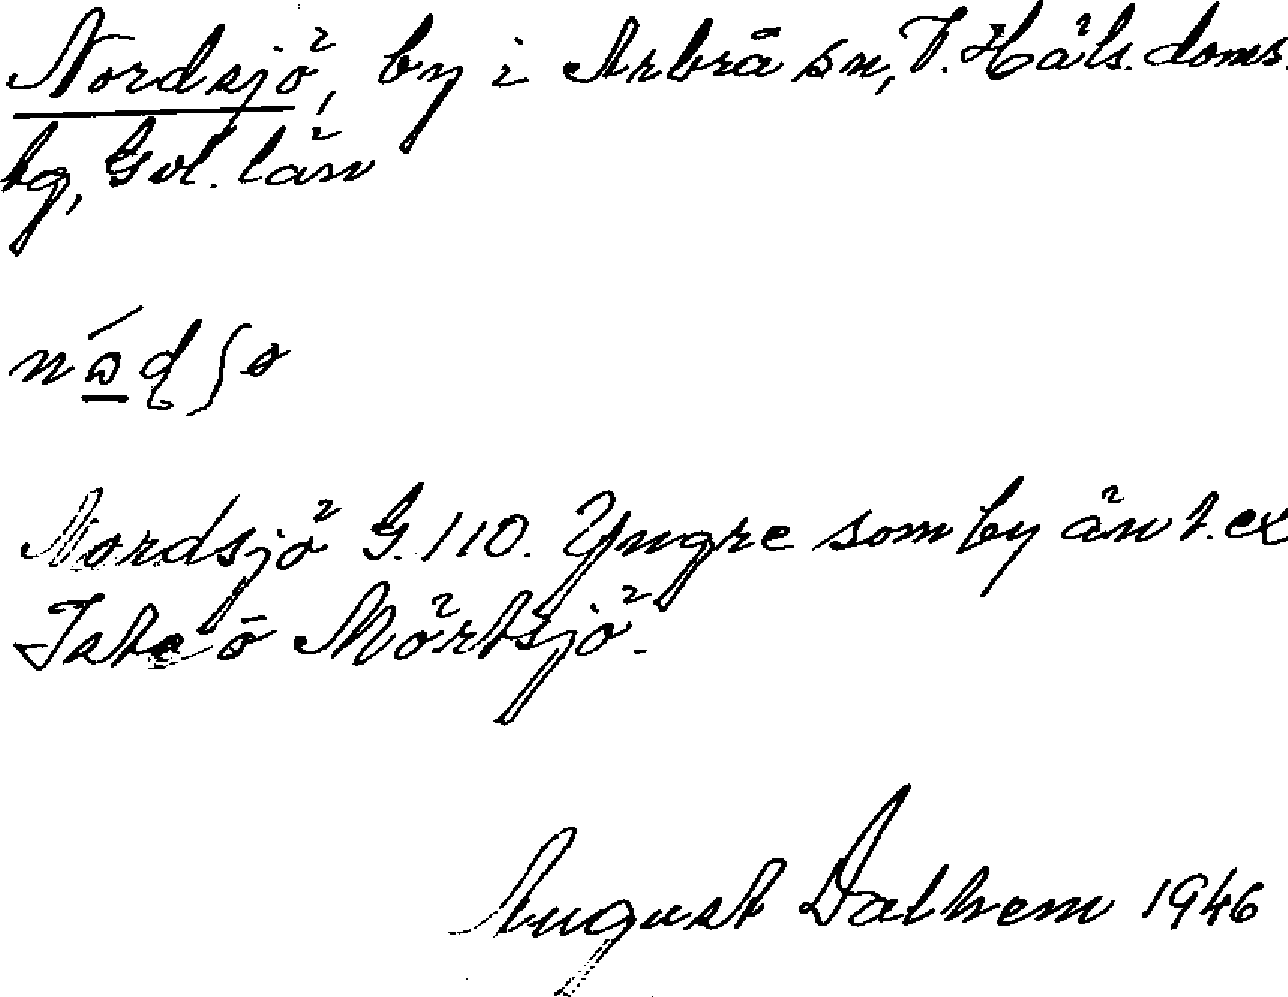 Nordsjö, by i Arbrå sn, V. Häls. doms.
tg, Gvl. län
Nordsjö G. 110. Yngre som by än t. ex
Iste o Mörtsjö.
August Dalhem 1946